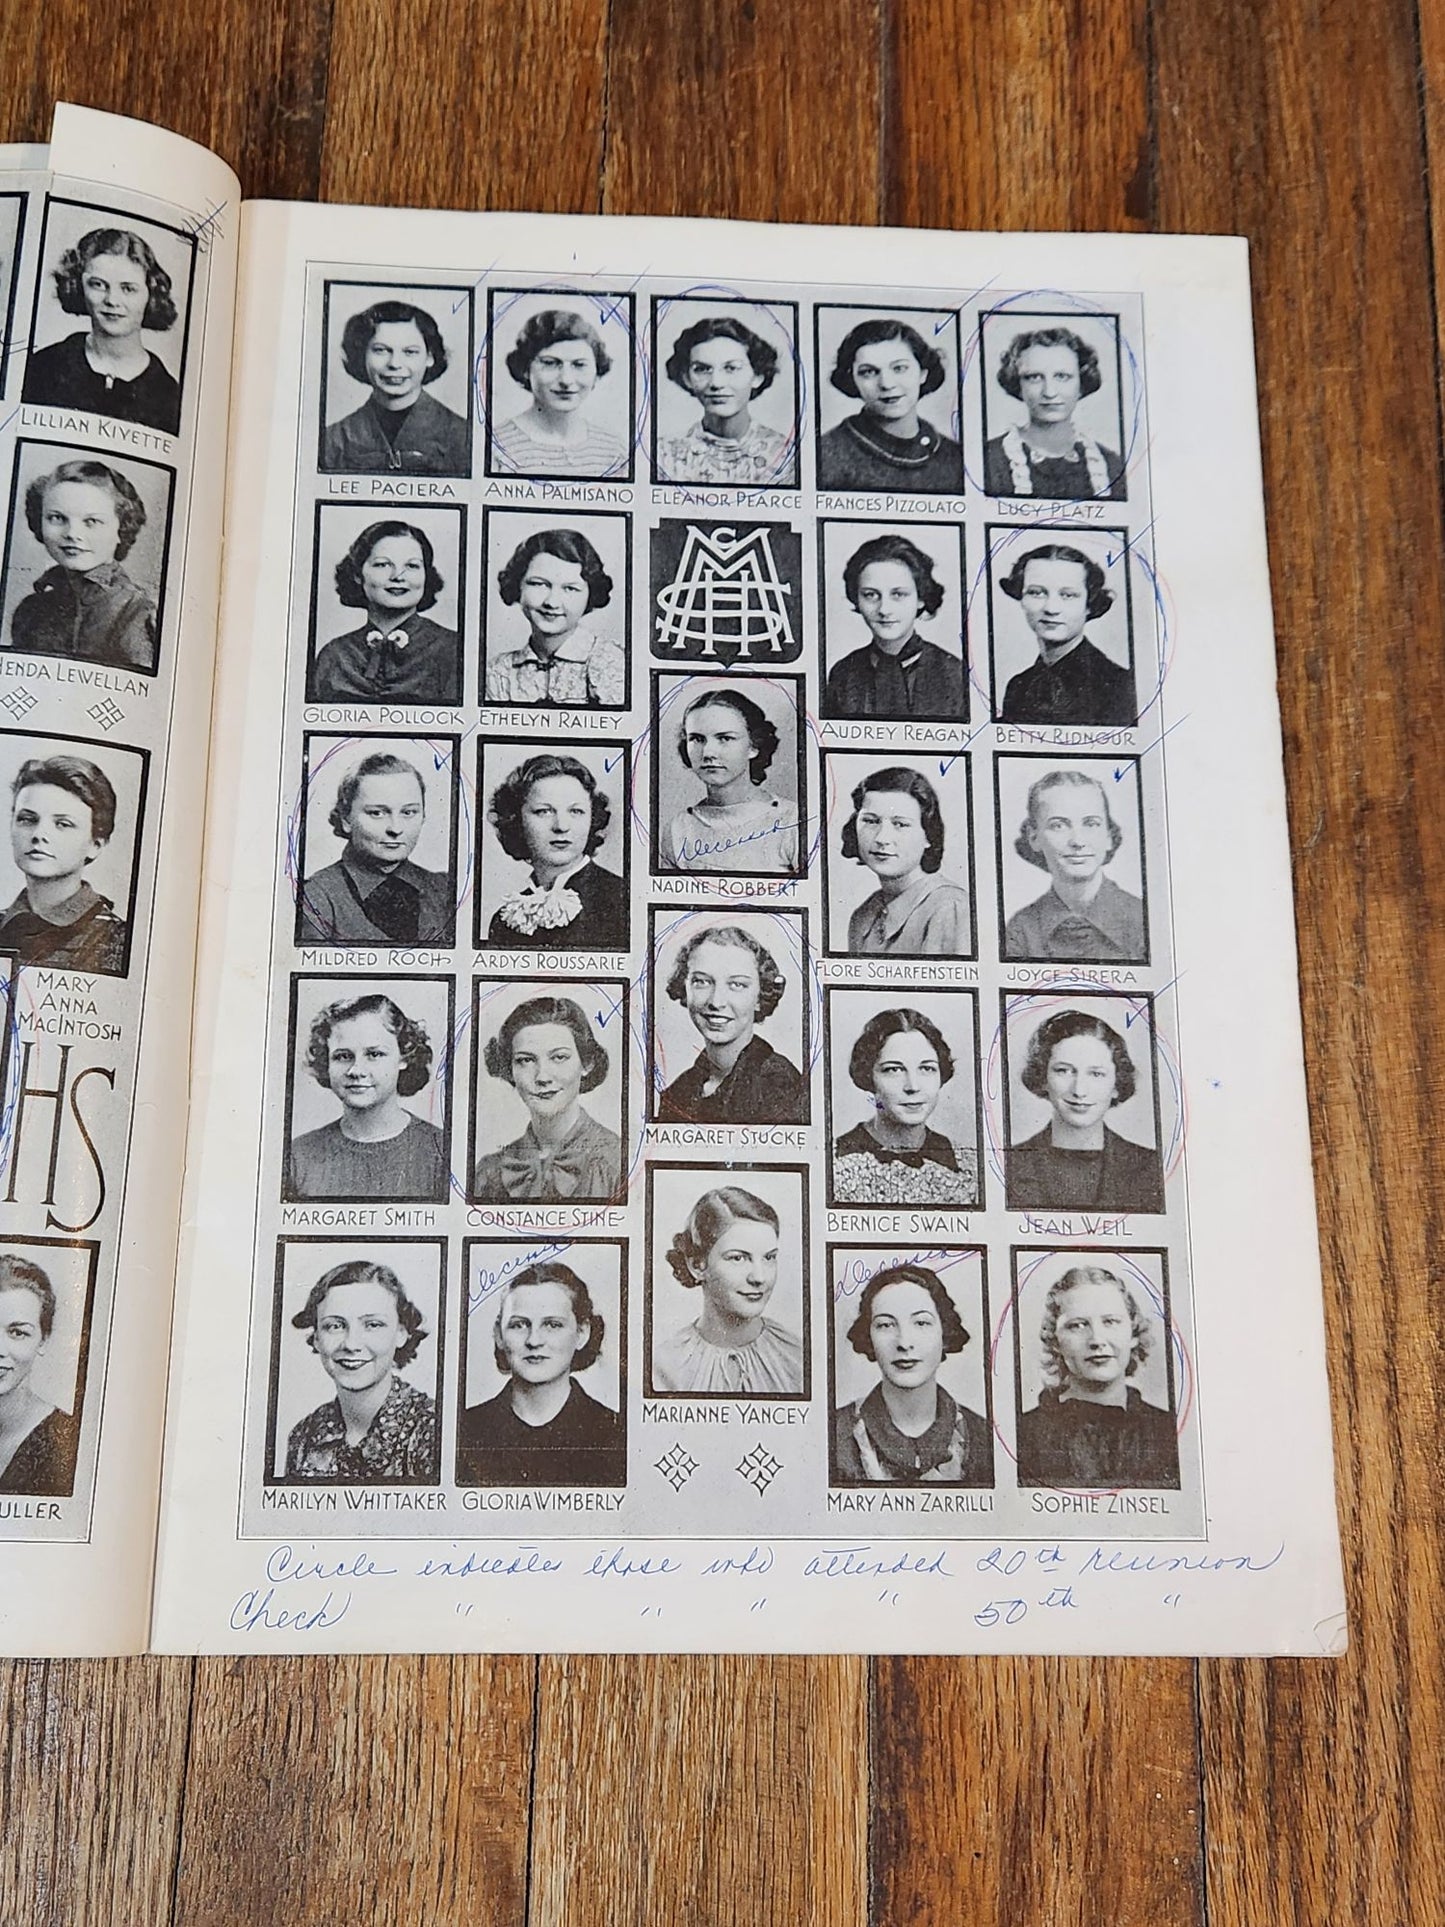 LILLIAN KIVETTE
ENDA LEWELLAN
MARY
ANNA
MACINTOSH
HS
ULLER
LEE PACIERA
ANNA PALMISANO
ELEANOR PEARCE
FRANCES PIZZOLATO
LUCY PLATZ
GLORIA POLLOCK
ETHELYN RAILEY
MCMHS
AUDREY REAGAN
BETTY RIDNOUR
Deceased
NADINE ROBBERT
MILDRED ROCH
ARDYS ROUSSARIE
FLORE SCHARFENSTEIN
JOYCE SIRERA
MARGARET STUCKE
MARGARET SMITH
CONSTANCE STINE
BERNICE SWAIN
JEAN WEIL
Deceased
Deceased
MARIANNE YANCEY
MARILYN WHITTAKER
GLORIA WIMBERLY
MARY ANN ZARRILLI
SOPHIE ZINSEL
Circle indicates those who attended 20th reunion
Check " " " " 50th "